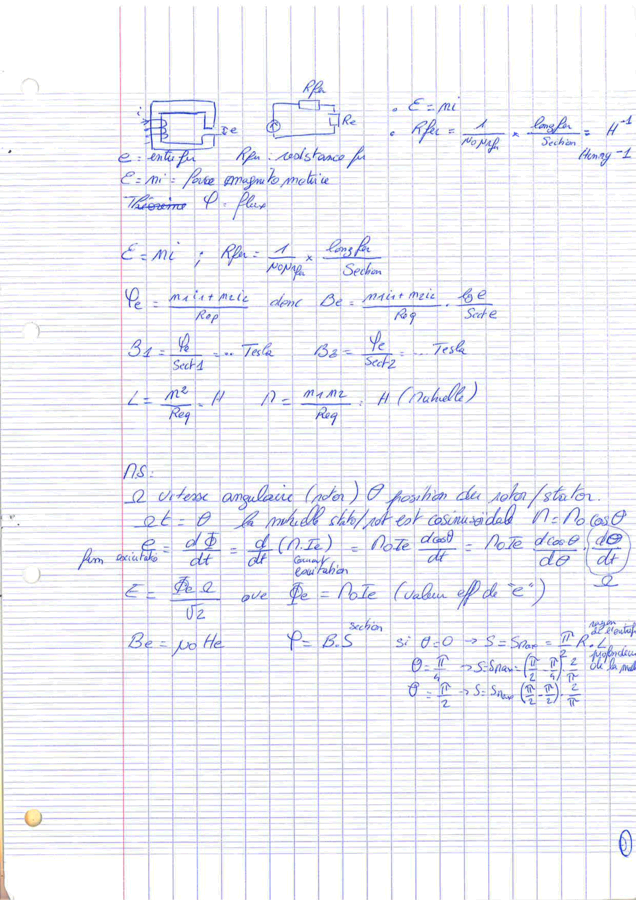 Rfer
i
e
Re
. Ɛ = ni
. Rfer = 1/(μ0 μrfer) × long fer/Section = H^-1
Henry -1
e = entrefer Rfer : resistance fer
Ɛ = ni = force magneto motrice
φ = flux
Ɛ = ni ; Rfer = 1/(μ0 μrfer) × long fer/Section
φe = (n1i1 + n2i2)/Rep donc Be = (n1i1 + n2i2)/Req . lg e/Sect e
B1 = φe/Sect1 = ... Tesla B2 = φe/Sect2 = ... Tesla
L = n²/Req = H M = n1n2/Req = H (Mutuelle)
MS :
Ω vitesse angulaire (rotor) θ position du rotor/stator.
Ωt = θ la mutuelle stato/rot est cosinusoïdale M = M0 cosθ
e = dΦ/dt = d/dt (M.Ie) = M0Ie dcosθ/dt = M0Ie dcosθ/dθ . (dθ/dt)
fem excitatio courant excitation Ω
E = Φe Ω/√2 ove Φe = M0Ie (valeur eff de "e")
Be = μ0 He φ = B.S section si θ=0 → S = Smax = π/2 R.L
rayon de l'entrefer
profondeur de la
θ = π/4 → S = Smax = (π/2 - π/4).2/π
θ = π/2 → S = Smax (π/2 - π/2).2/π